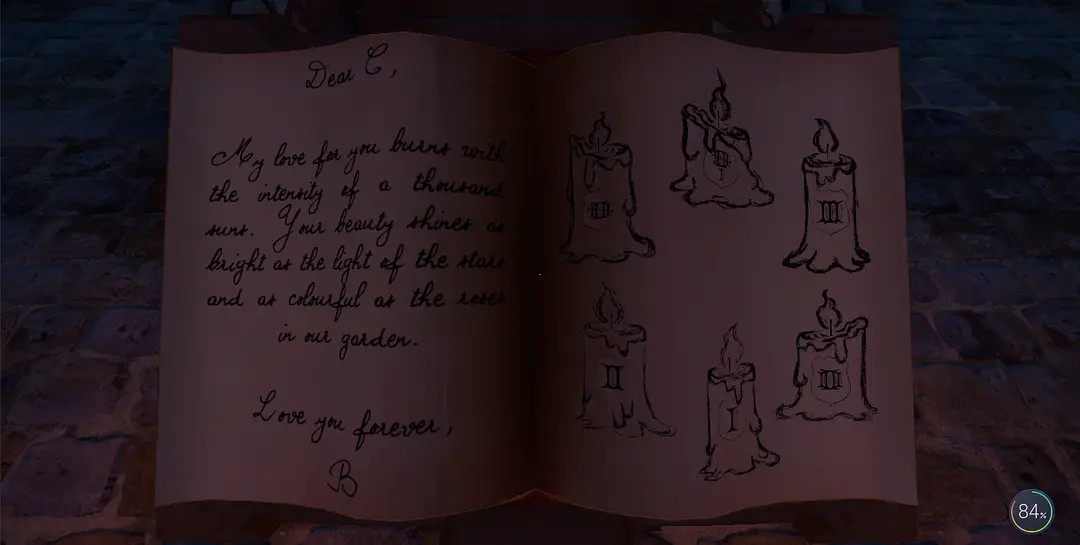 Dear C,
My love for you burns with
the intensity of a thousand
suns. Your beauty shines as
bright as the light of the stars
and as colourful as the roses
in our garden.
Love you forever,
B
III
II
I
III
84%